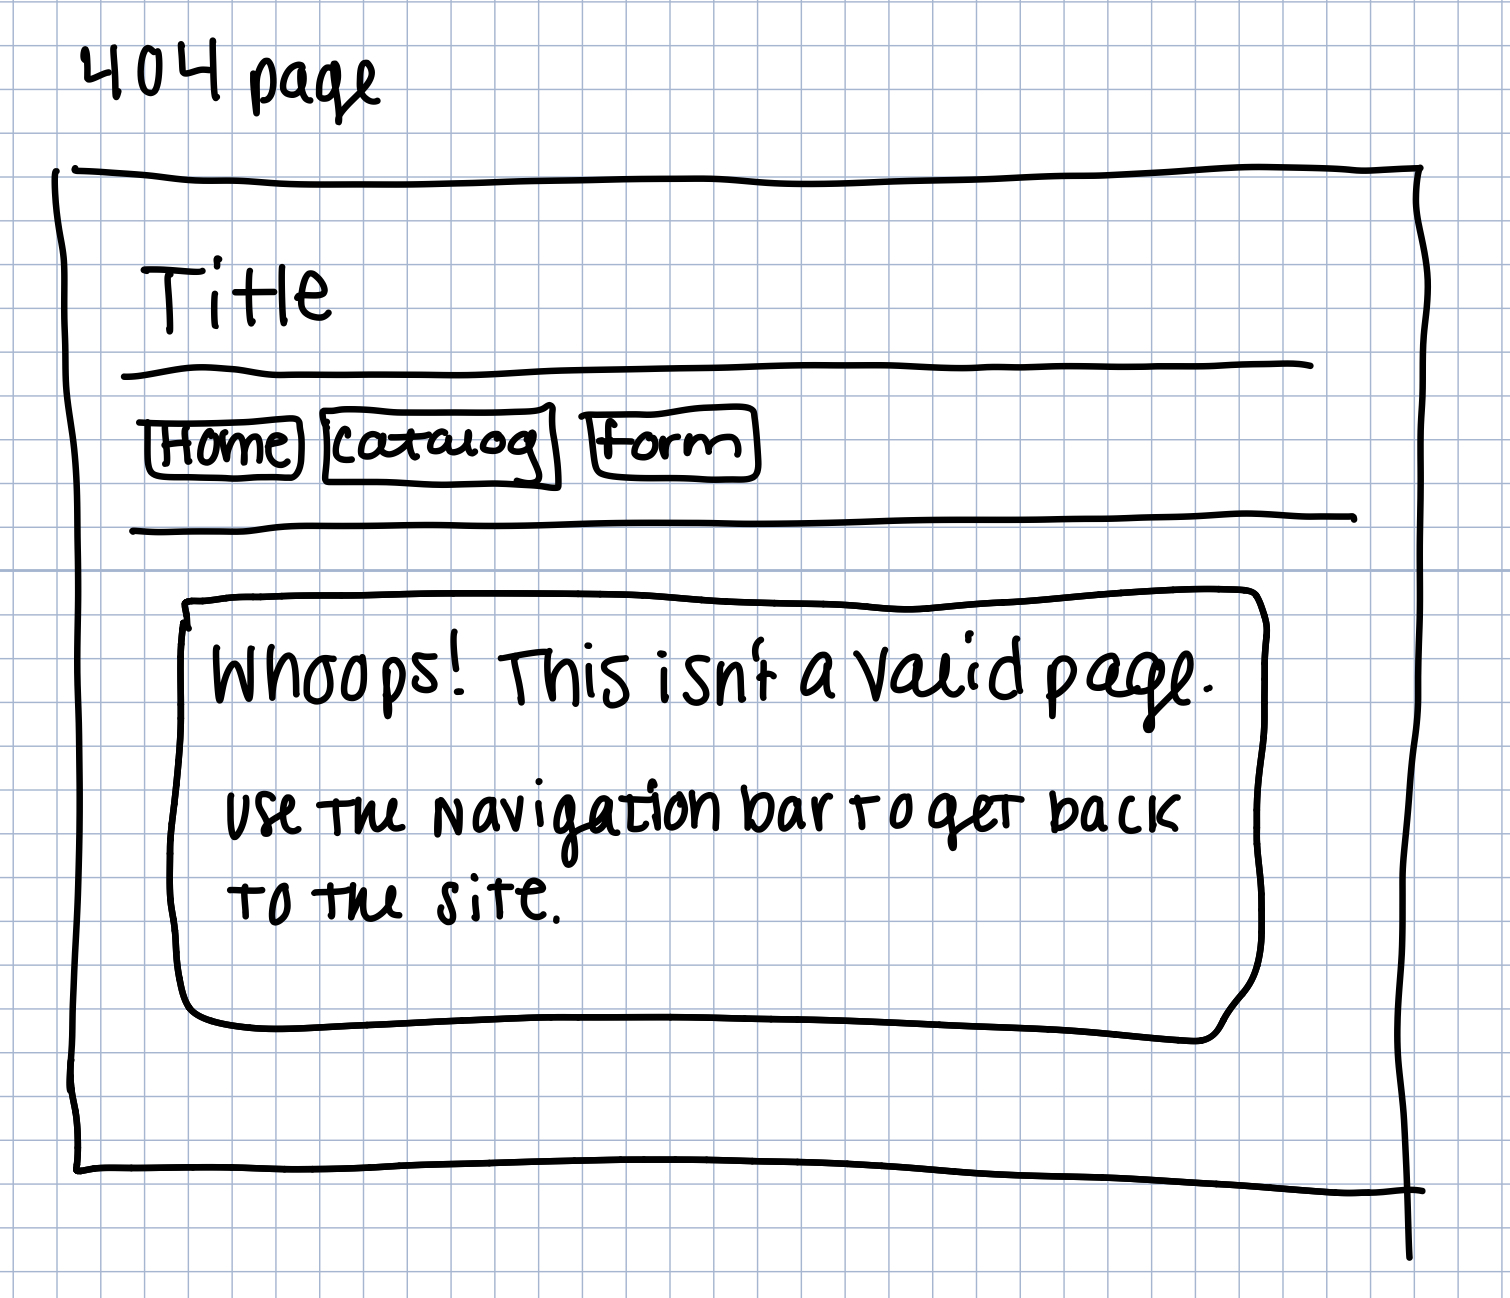 404 page
Title
Home catalog form
Whoops! This isn't a valid page.
use the navigation bar to get back
to the site.